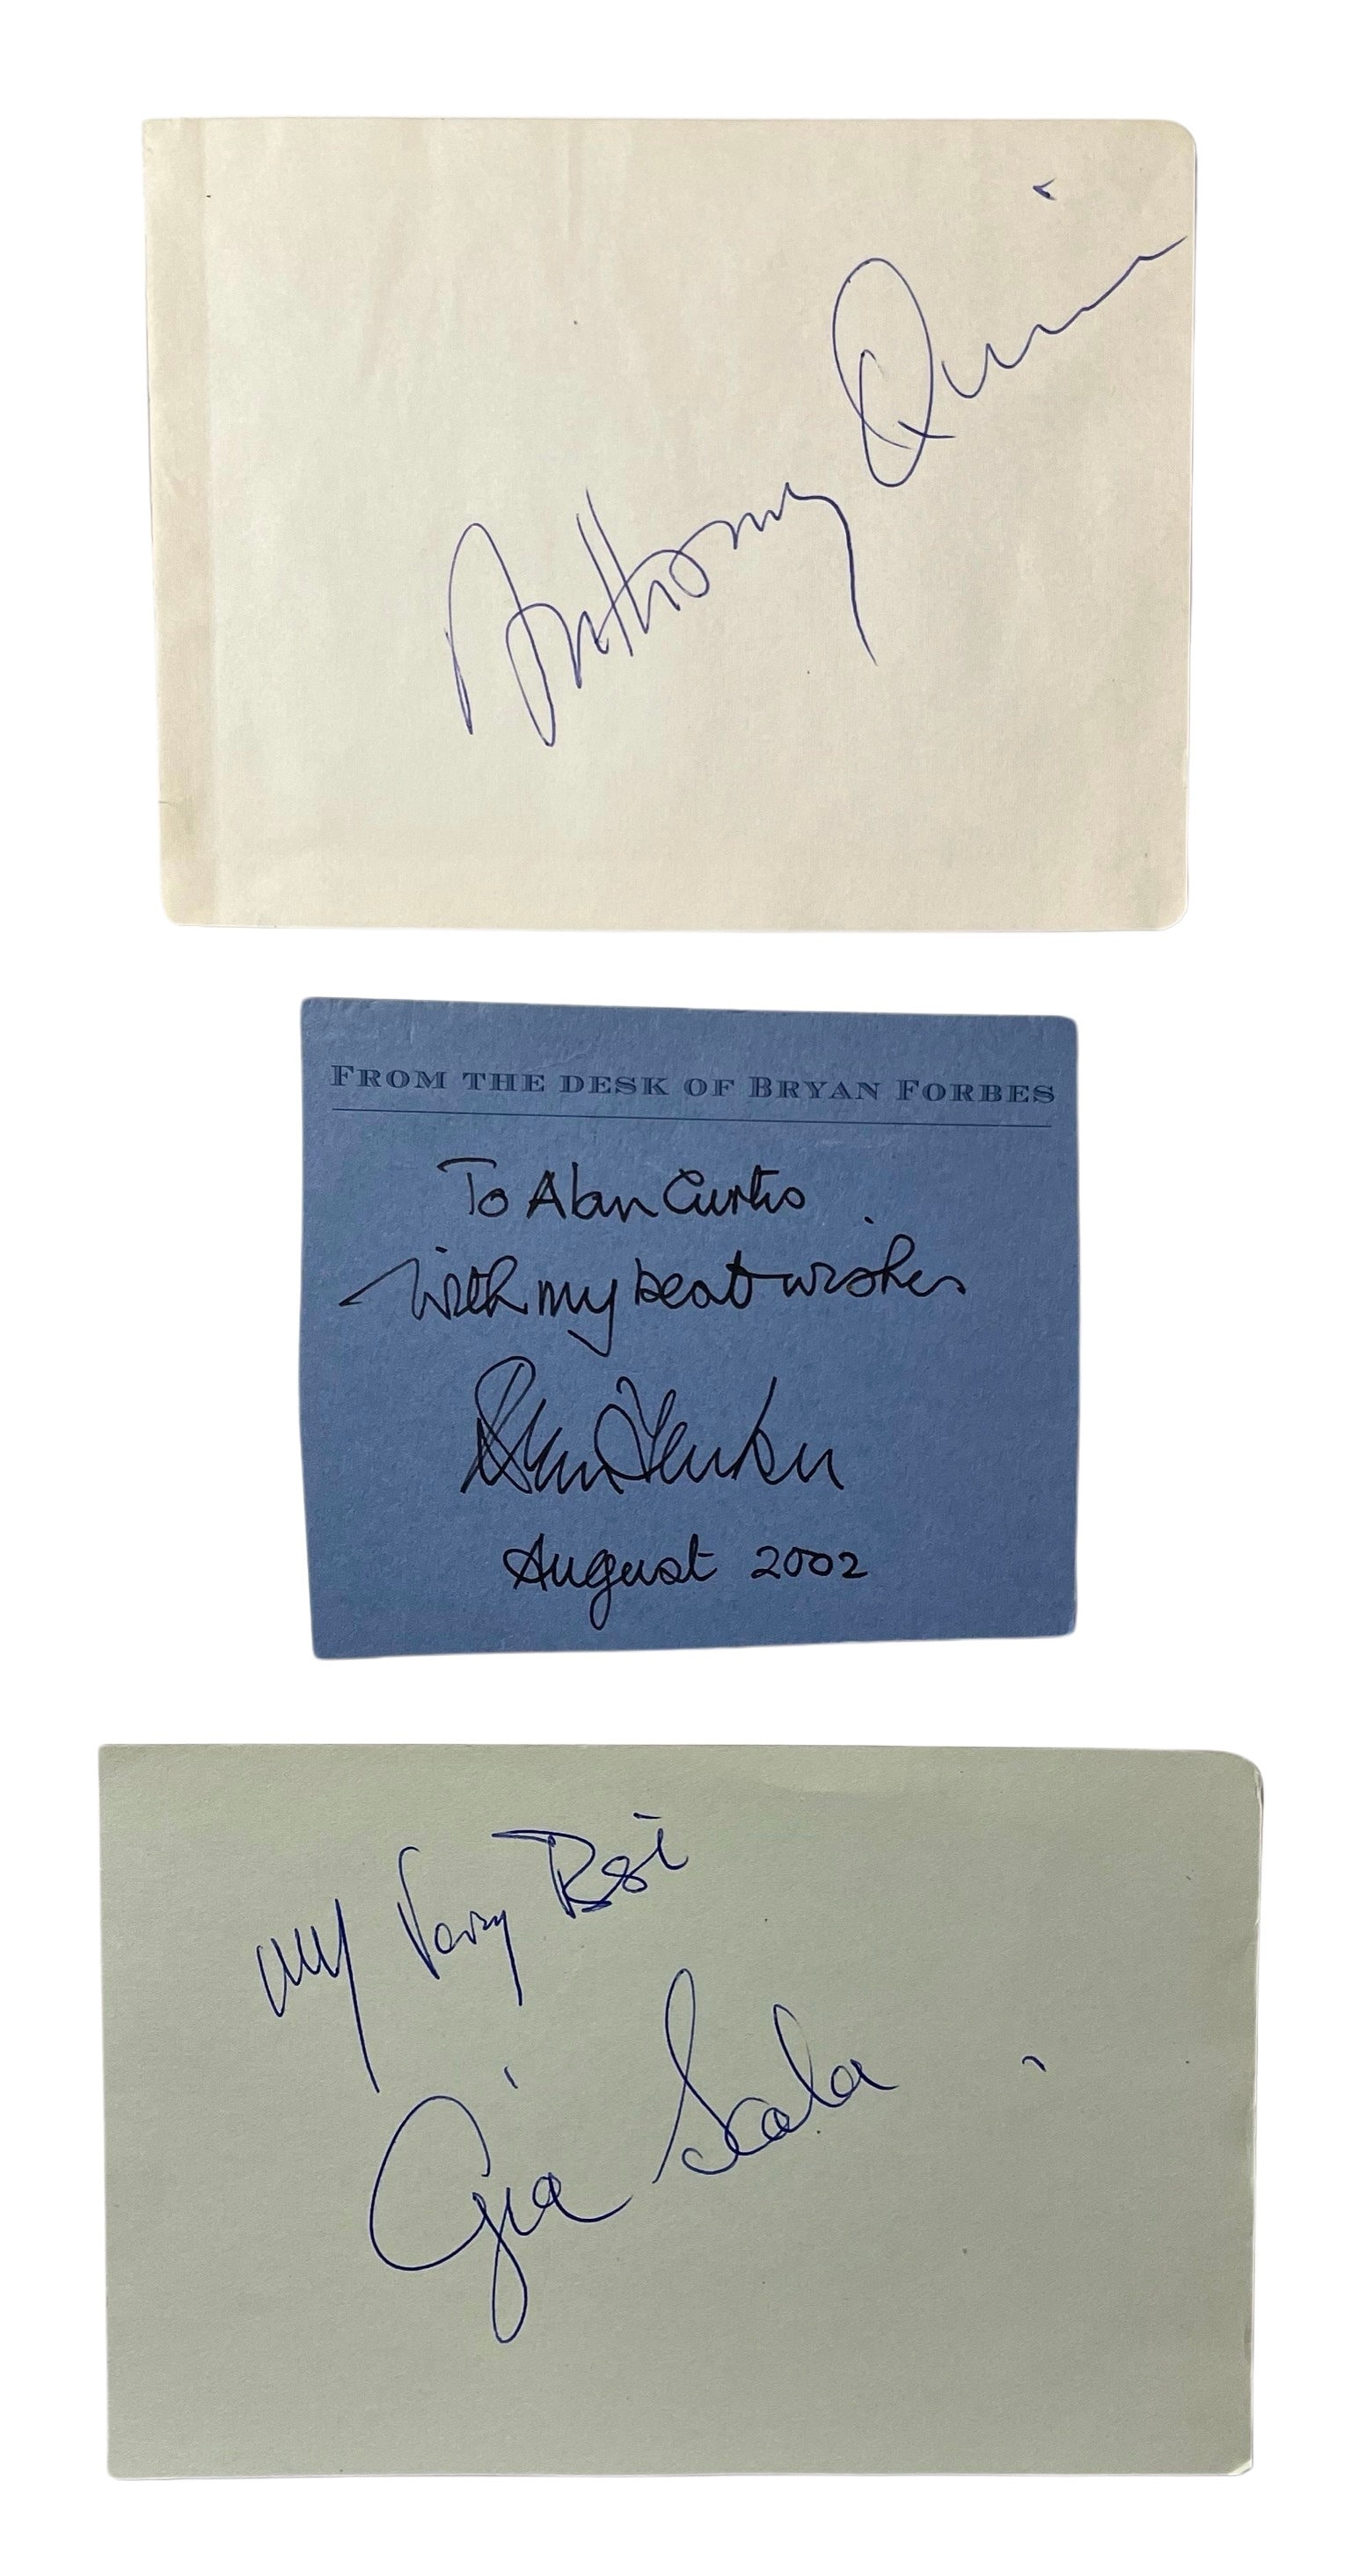 Anthony Quinn
FROM THE DESK OF BRYAN FORBES
To Alan Curtis
with my best wishes
Bryan Forbes
August 2002
My Very Best
Gia Scala